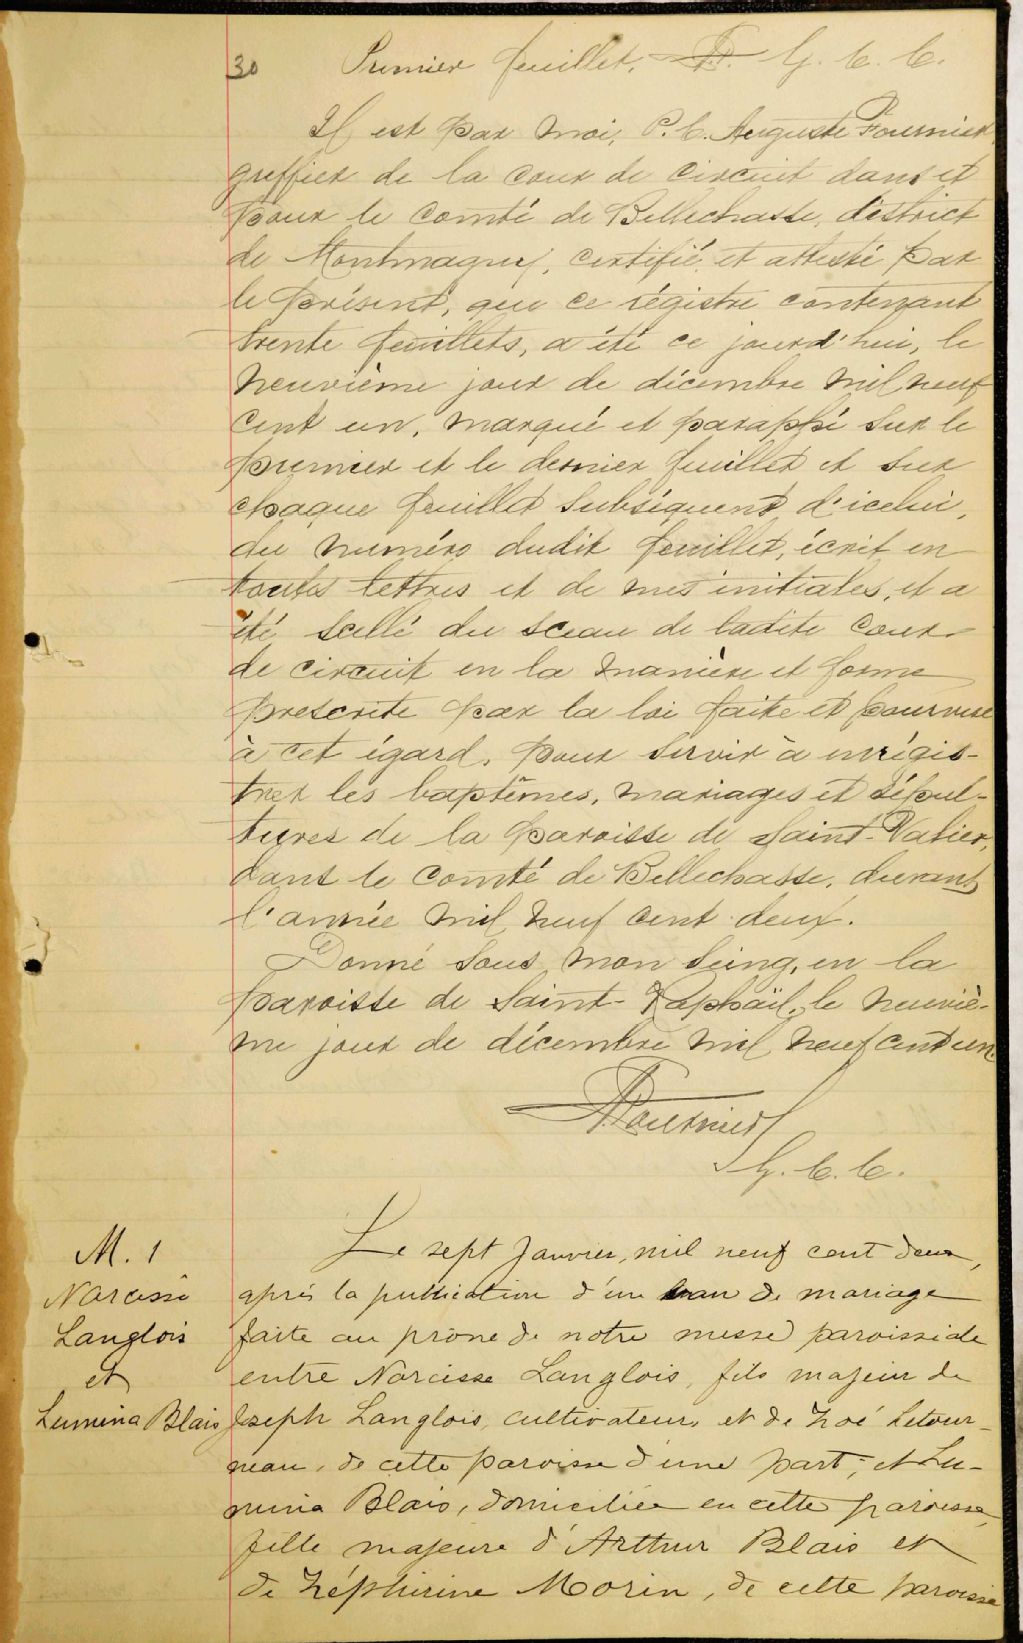 30 Premier feuillet. G. C. C.
Il est par moi, P. C. Auguste Fournier
greffier de la cour de circuit dans et
pour le comté de Bellechasse, district
de Montmagny, certifié et attesté par
le présent, que ce régistre contenant
trente feuillets, a été ce jourd'hui, le
neuvième jour de décembre mil neuf
cent un, marqué et paraphé sur le
premier et le dernier feuillet et sur
chaque feuillet subséquent d'icelui,
du numéro dudit feuillet, écrit en
toutes lettres et de mes initiales, et a
été scellé du sceau de ladite cour
de circuit en la manière et forme
prescrite par la loi faite et pourvue
à cet égard, pour servir à enrégis-
trer les baptêmes, mariages et sépul-
tures de la paroisse de Saint-Valier,
dans le comté de Bellechasse, durant
l'année mil neuf cent deux.
Donné sous mon seing, en la
paroisse de Saint-Raphaël, le neuviè-
me jour de décembre mil neuf cent un.
Fournier
G. C. C.
M. 1
Narcisse
Langlois
et
Lumina Blais
Le sept Janvier, mil neuf cent deux,
après la publication d'un ban de mariage
faite au prône de notre messe paroissiale
entre Narcisse Langlois, fils majeur de
Joseph Langlois, cultivateur, et de Zoé Letour-
neau, de cette paroisse d'une part; et Lu-
mina Blais, domiciliée en cette paroisse,
fille majeure d'Arthur Blais et
de Zéphirine Morin, de cette paroisse